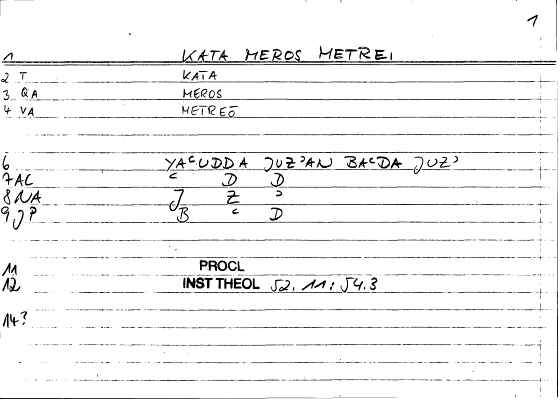 1
1 KATA MEROS METREI
2 T KATA
3 QA MEROS
4 VA METREŌ
6 YAᶜUDDA JUZʾAN BAᶜDA JUZʾ
7 AC ᶜ D D
8 NA J Z ʾ
9 JP B ᶜ D
11 PROCL
12 INST THEOL 52. 11; 54.3
14?